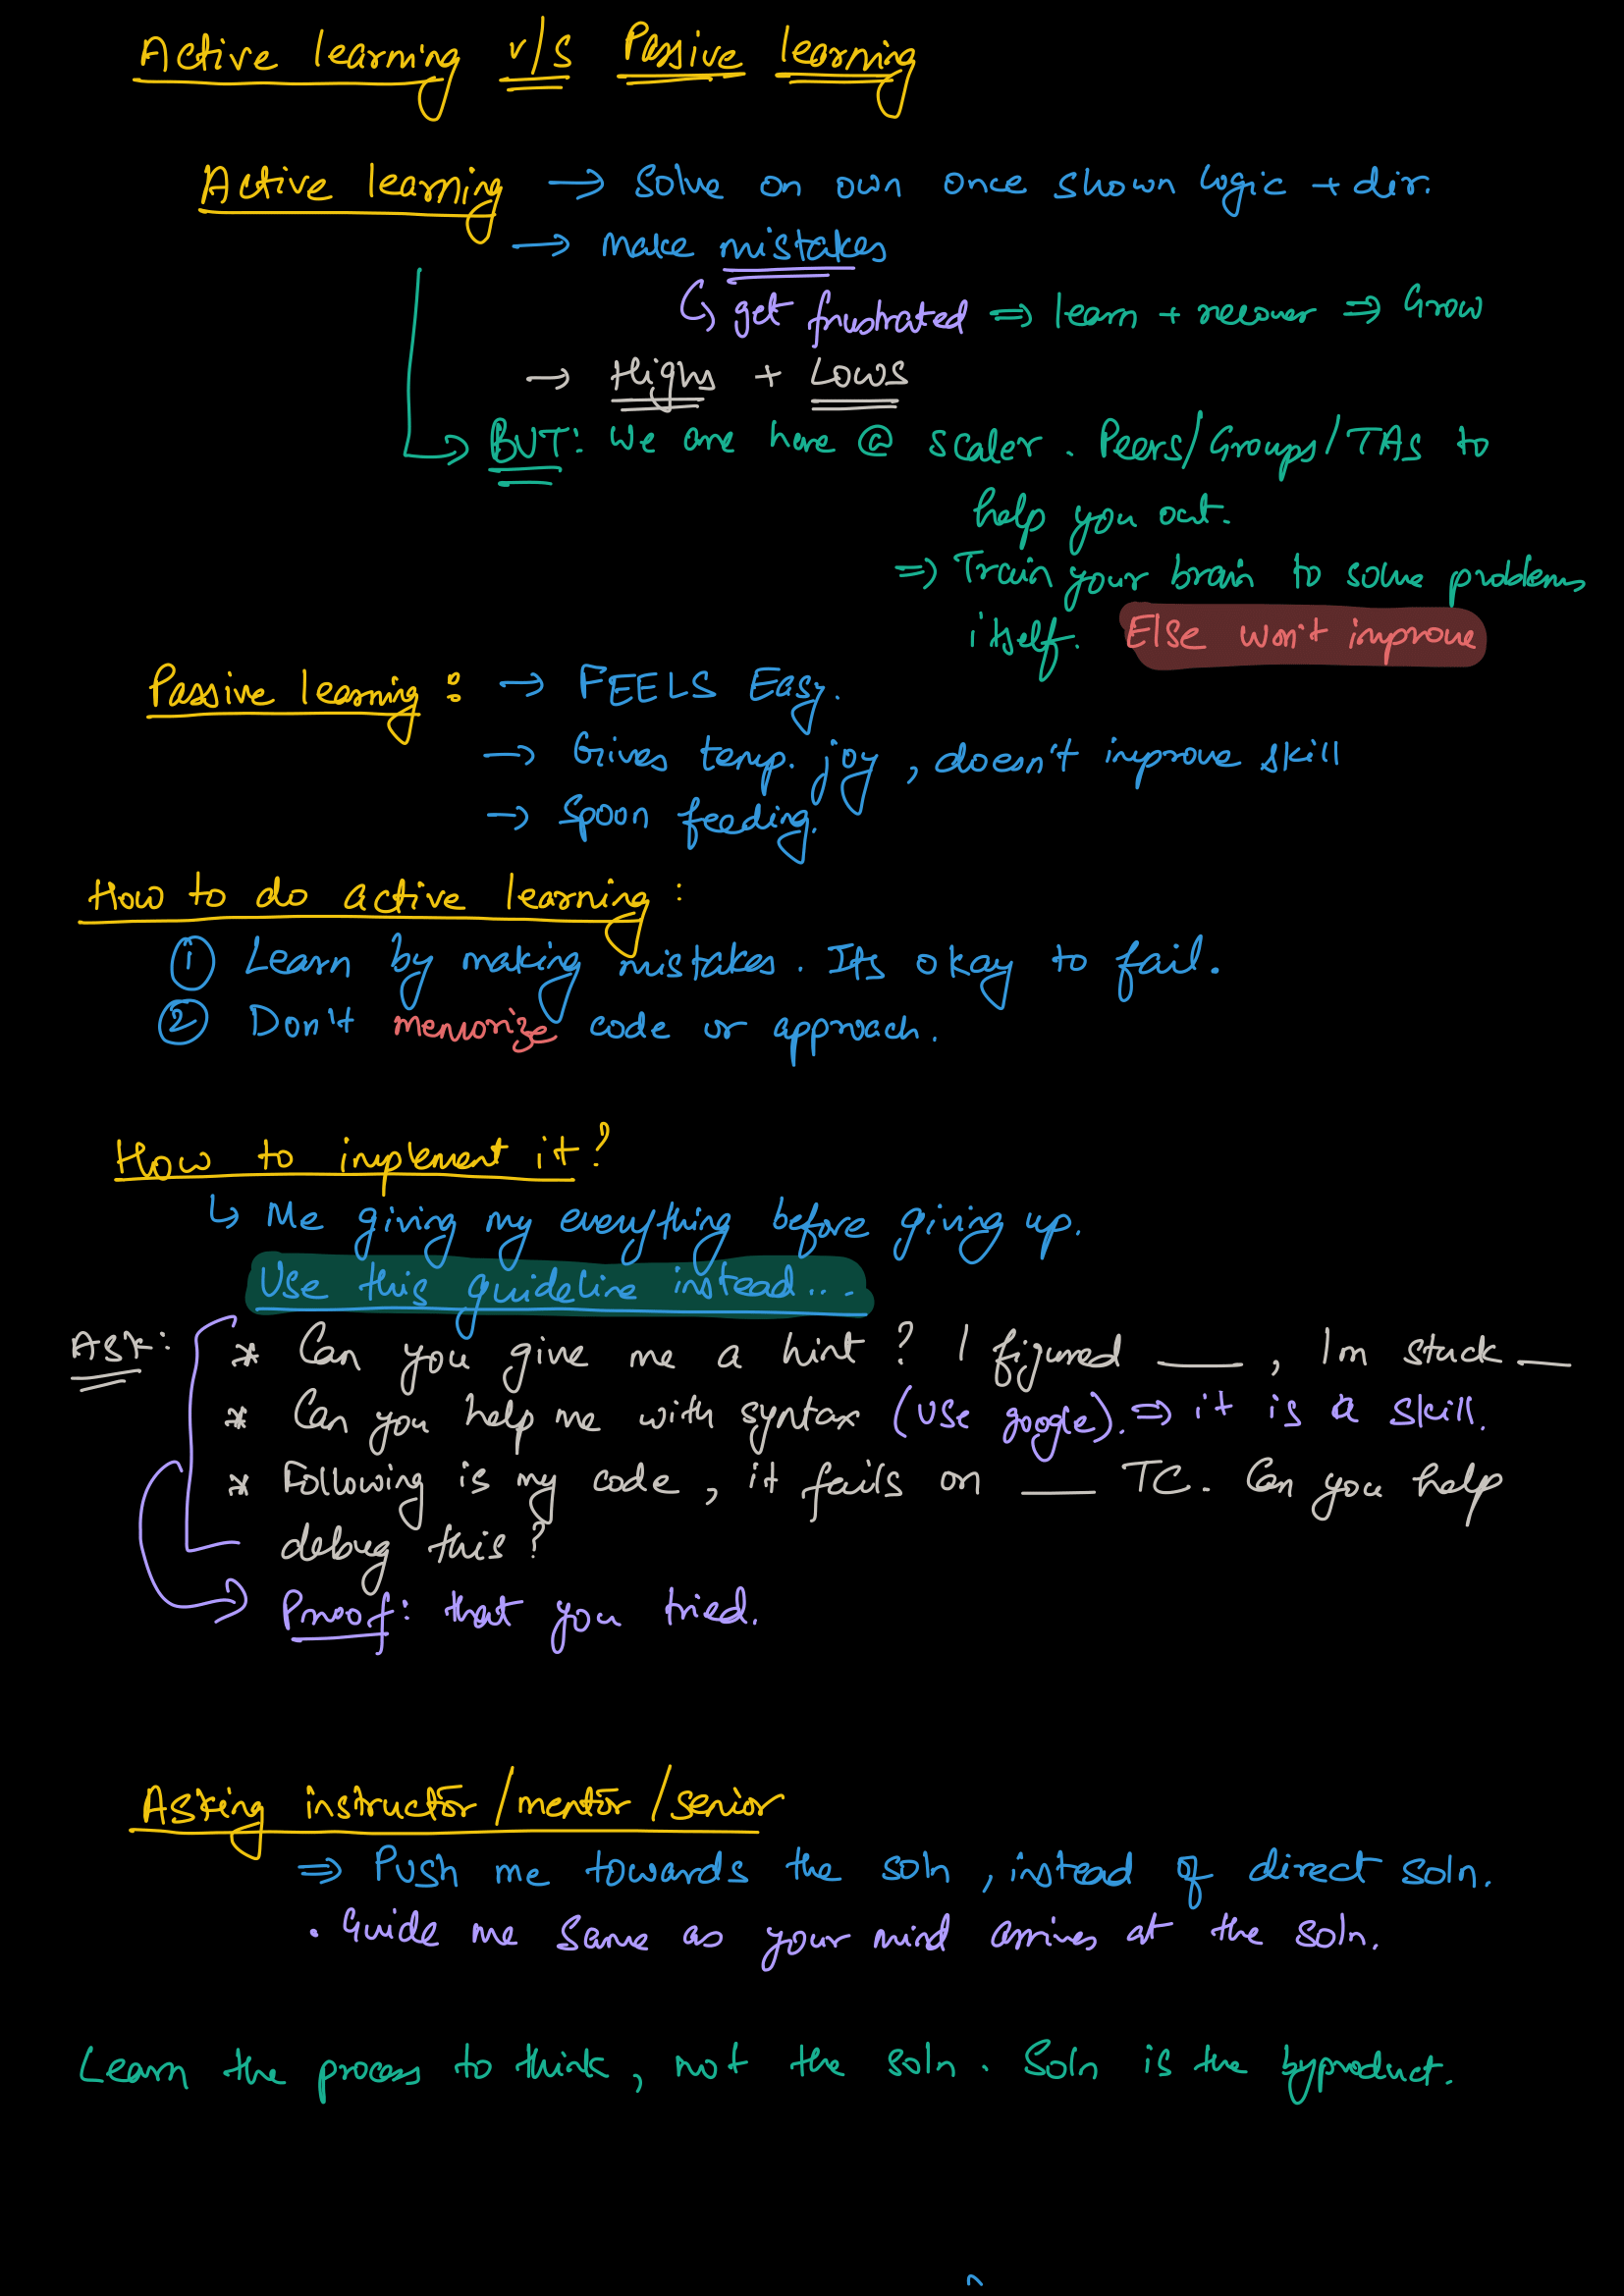 Active learning v/s Passive learning
Active learning → Solve on own once shown logic + dir.
→ make mistakes
↳ get frustrated ⇒ learn + recover ⇒ Grow
→ Highs + Lows
↳ BUT: We are here @ Scaler. Peers/Groups/TAs to
help you out.
⇒ Train your brain to solve problems
itself. Else won't improve
Passive learning: → FEELS Easy.
→ Gives temp. joy, doesn't improve skill
→ Spoon feeding.
How to do active learning:
① Learn by making mistakes. Its okay to fail.
② Don't memorize code or approach.
How to implement it?
↳ Me giving my everything before giving up.
Use this guideline instead...
ASK: * Can you give me a hint? I figured ___, Im stuck ___
* Can you help me with syntax (use google). ⇒ it is a skill.
* Following is my code, it fails on ___ TC. Can you help
debug this?
Proof: that you tried.
Asking instructor/mentor/senior
⇒ Push me towards the soln, instead of direct soln.
. Guide me same as your mind arrives at the soln.
Learn the process to think, not the soln. Soln is the byproduct.